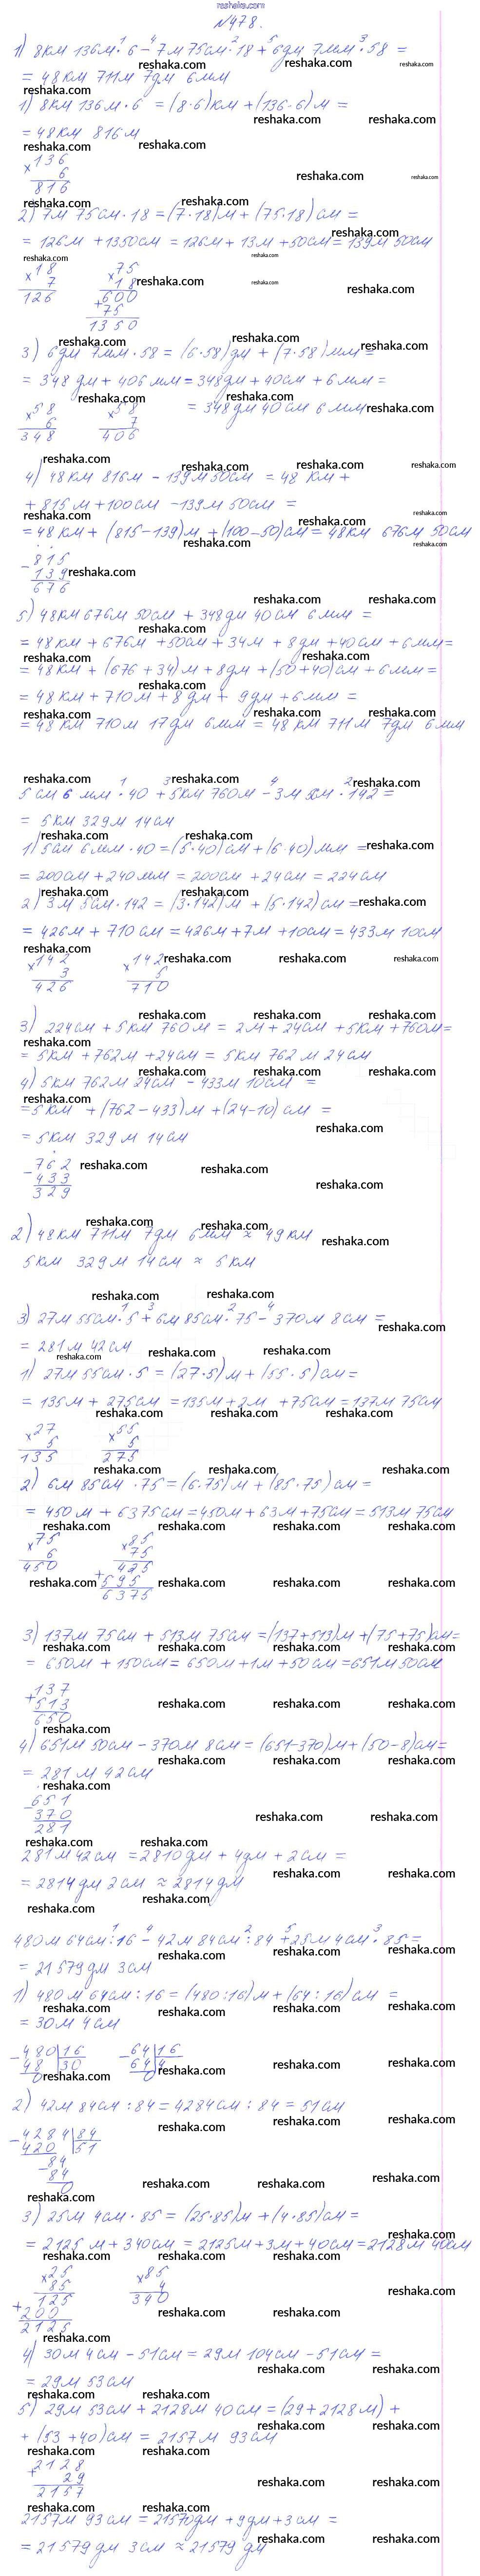 reshaka.com
№478.
1) 8км 136м · 6 - 7м 75см · 18 + 6дм 7мм · 58 =
= 48км 711м 7дм 6мм
1) 8км 136м · 6 = (8·6)км + (136·6)м =
= 48км 816м
× 136
6
816
2) 7м 75см · 18 = (7·18)м + (75·18)см =
= 126м + 1350см = 126м + 13м + 50см = 139м 50см
× 18 × 75
7 18
126 + 600
75
1350
3) 6дм 7мм · 58 = (6·58)дм + (7·58)мм =
= 348дм + 406мм = 348дм + 40см + 6мм =
= 348дм 40см 6мм
× 58 × 58
6 7
348 406
4) 48км 816м - 139м 50см = 48км +
+ 815м + 100см - 139м 50см =
= 48км + (815-139)м + (100-50)см = 48км 676м 50см
- 815
139
676
5) 48км 676м 50см + 348дм 40см 6мм =
= 48км + 676м + 50см + 34м + 8дм + 40см + 6мм =
= 48км + (676 + 34)м + 8дм + (50+40)см + 6мм =
= 48км + 710м + 8дм + 9дм + 6мм =
= 48км 710м 17дм 6мм = 48км 711м 7дм 6мм
5см 6мм · 40 + 5км 760м - 3м 5см · 142 =
= 5км 329м 14см
1) 5см 6мм · 40 = (5·40)см + (6·40)мм =
= 200см + 240мм = 200см + 24см = 224см
2) 3м 5см · 142 = (3·142)м + (5·142)см =
= 426м + 710см = 426м + 7м + 10см = 433м 10см
× 142 × 142
3 5
426 710
3) 224см + 5км 760м = 2м + 24см + 5км + 760м =
= 5км + 762м + 24см = 5км 762м 24см
4) 5км 762м 24см - 433м 10см =
= 5км + (762-433)м + (24-10)см =
= 5км 329м 14см
- 762
433
329
2) 48км 711м 7дм 6мм ≈ 49км
5км 329м 14см ≈ 5км
3) 27м 55см · 5 + 6м 85см · 75 - 370м 8см =
= 281м 42см
1) 27м 55см · 5 = (27·5)м + (55·5)см =
= 135м + 275см = 135м + 2м + 75см = 137м 75см
× 27 × 55
5 5
135 275
2) 6м 85см · 75 = (6·75)м + (85·75)см =
= 450м + 6375см = 450м + 63м + 75см = 513м 75см
× 75 × 85
6 75
450 + 425
595
6375
3) 137м 75см + 513м 75см = (137+513)м + (75+75)см =
= 650м + 150см = 650м + 1м + 50см = 651м 50см
+ 137
513
650
4) 651м 50см - 370м 8см = (651-370)м + (50-8)см =
= 281м 42см
- 651
370
281
281м 42см = 2810дм + 4дм + 2см =
= 2814дм 2см ≈ 2814дм
480м 64см : 16 - 42м 84см : 84 + 25м 4см · 85 =
= 21579дм 3см
1) 480м 64см : 16 = (480:16)м + (64:16)см =
= 30м 4см
- 480 16 - 64 16
48 30 64 4
0 0
2) 42м 84см : 84 = 4284см : 84 = 51см
- 4284 84
420 51
- 84
84
0
3) 25м 4см · 85 = (25·85)м + (4·85)см =
= 2125м + 340см = 2125м + 3м + 40см = 2128м 40см
× 25 × 85
85 4
+ 125 340
200
2125
4) 30м 4см - 51см = 29м 104см - 51см =
= 29м 53см
5) 29м 53см + 2128м 40см = (29 + 2128м) +
+ (53 + 40)см = 2157м 93см
+ 2128
29
2157
2157м 93см = 21570дм + 9дм + 3см =
= 21579дм 3см ≈ 21579дм